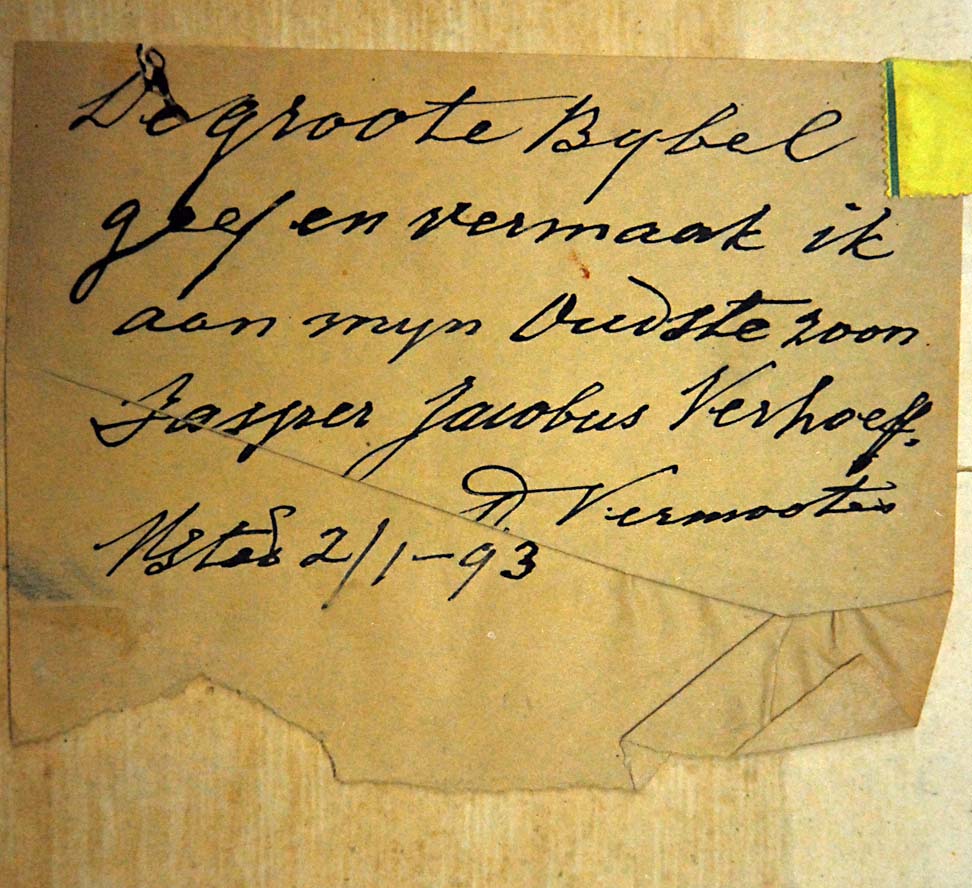 De groote Bybel
geef en vermaak ik
aan myn Oudste zoon
Jasper Jacobus Verhoeff.
D Vermooten
2/1-93